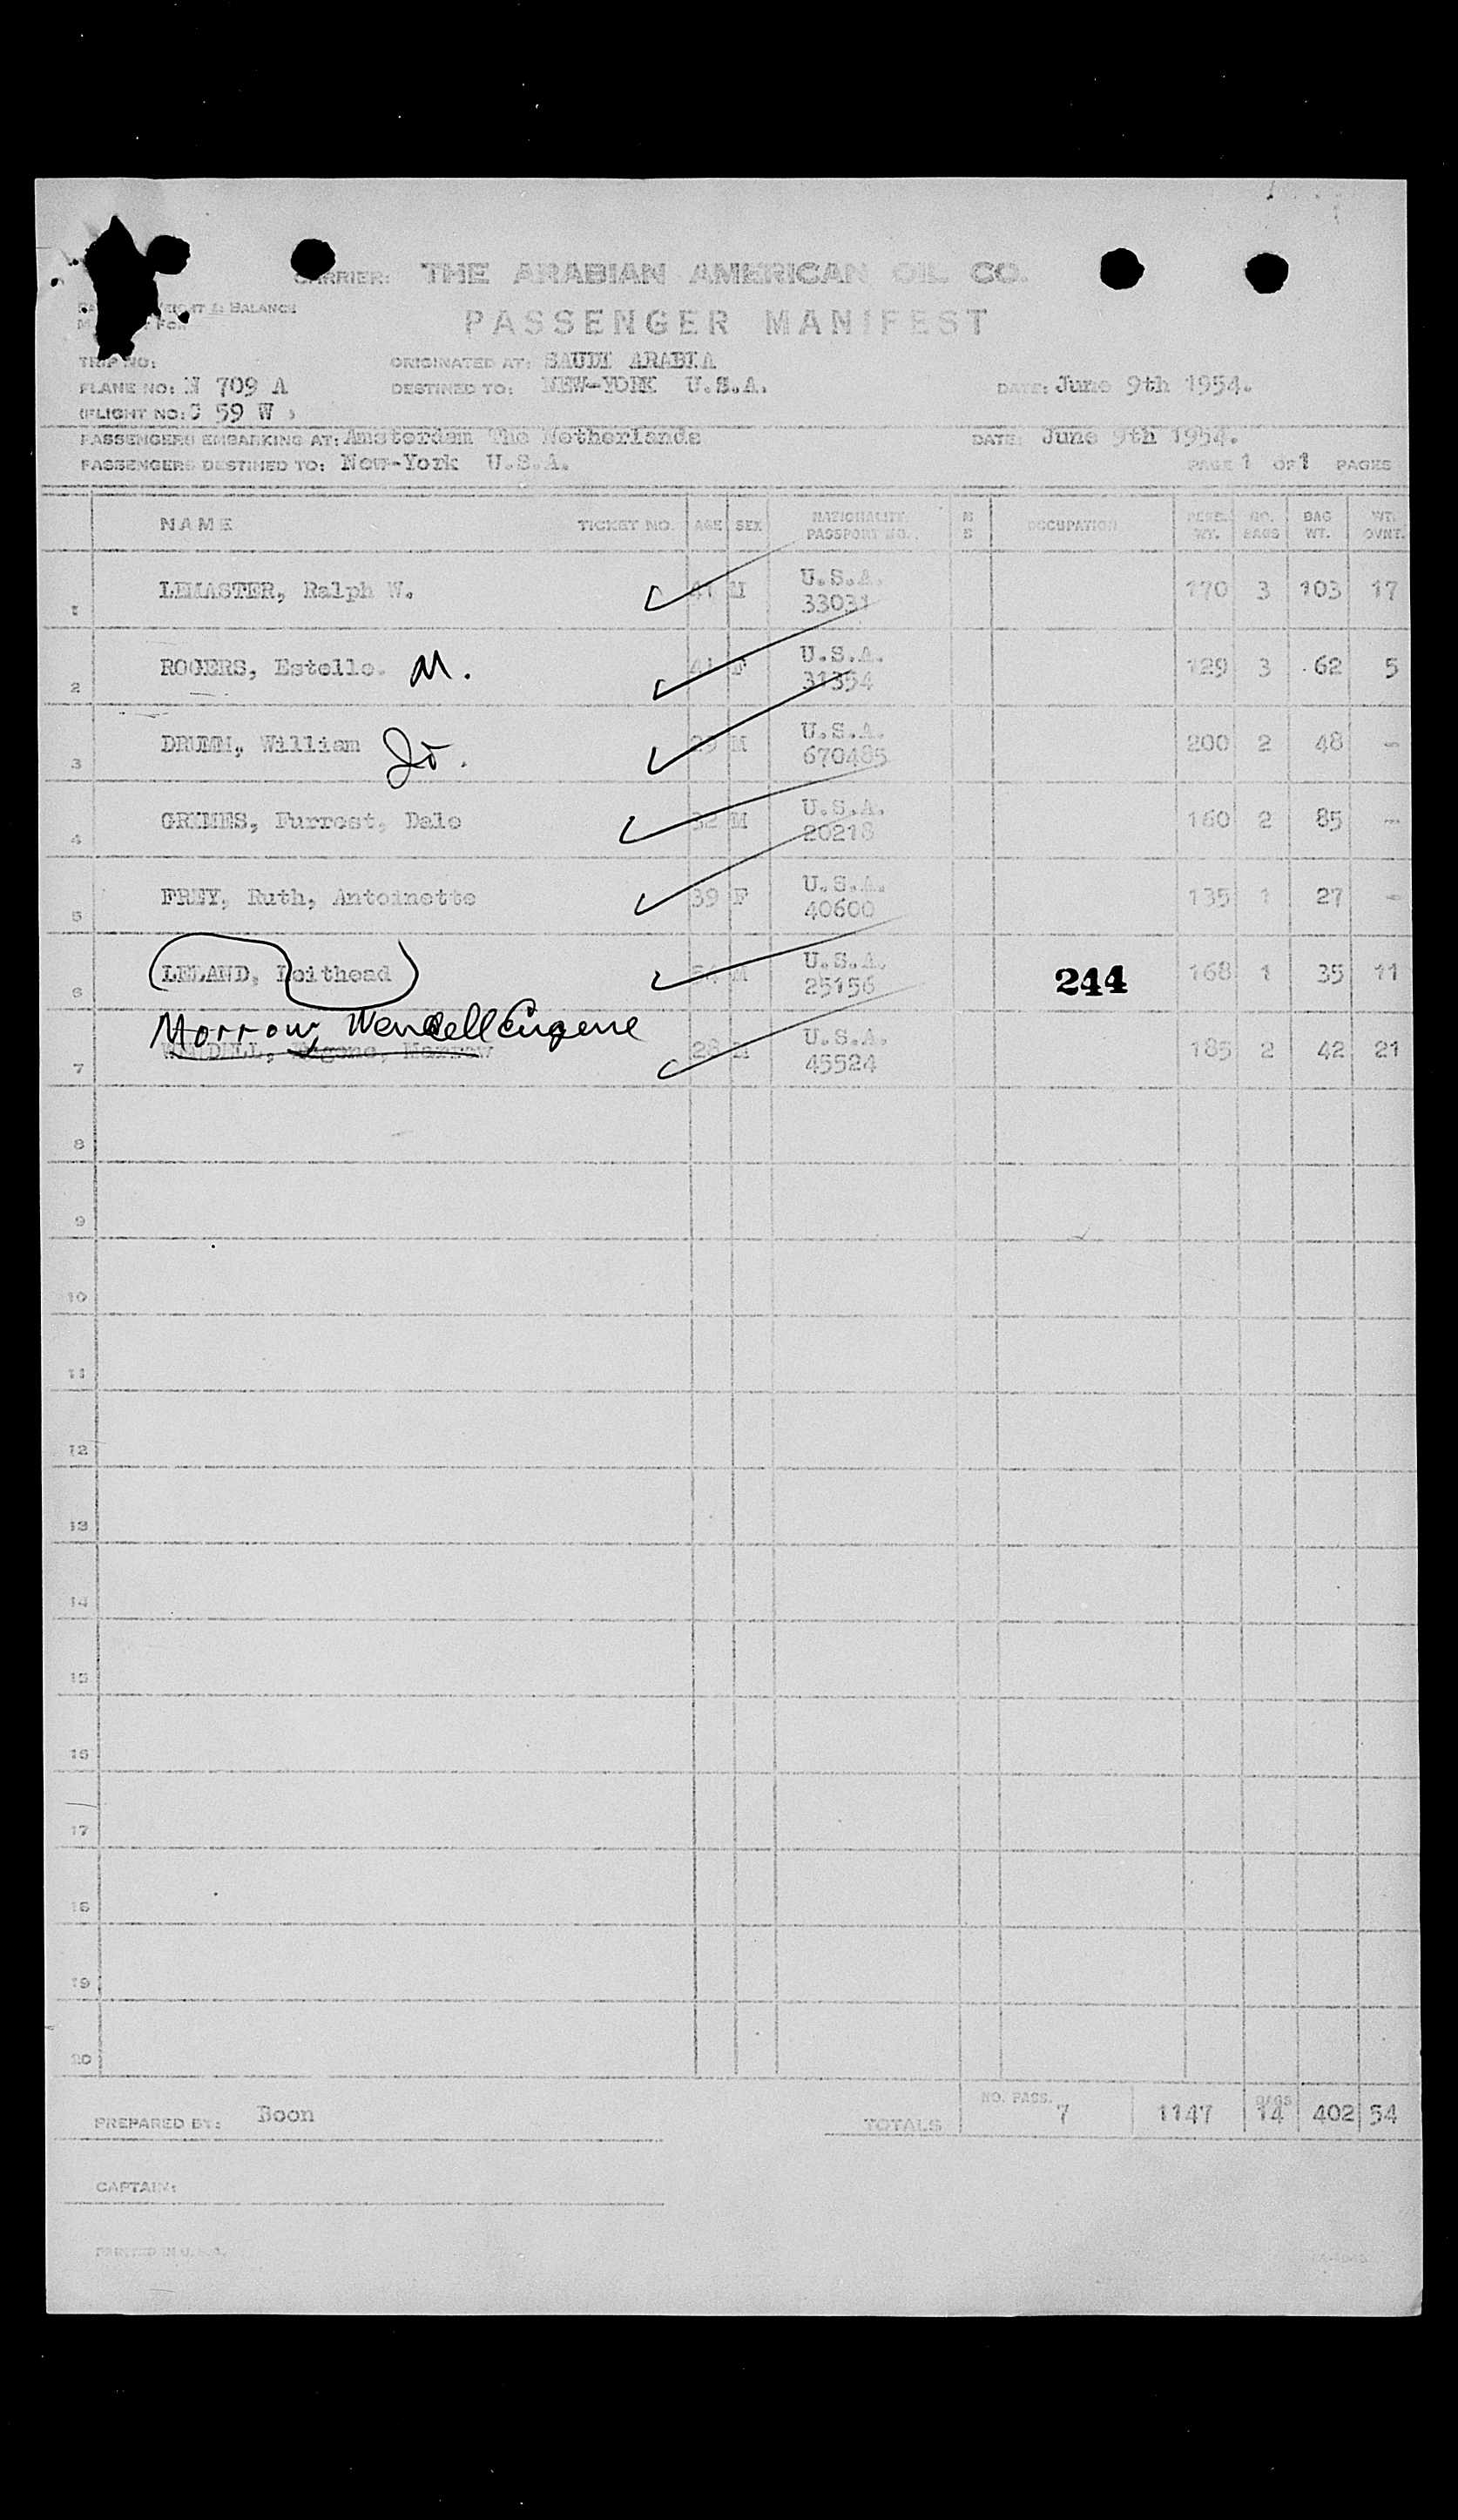 CARRIER: THE ARABIAN AMERICAN OIL CO.
WEIGHT & BALANCE
PASSENGER MANIFEST
TRIP NO: ORIGINATED AT: SAUDI ARABIA
PLANE NO: N 709 A DESTINED TO: NEW-YORK U.S.A. DATE: June 9th 1954.
(FLIGHT NO: 59 W )
PASSENGERS EMBARKING AT: Amsterdam The Netherlands DATE: June 9th 1954.
PASSENGERS DESTINED TO: New-York U.S.A. PAGE 1 OF 1 PAGES
NAME TICKET NO. AGE SEX NATIONALITY PASSPORT NO. OCCUPATION PERS. WT. NO. BAGS BAG WT. WT. OVNT.
1 LEMASTER, Ralph W. 41 M U.S.A. 33031 170 3 103 17
2 ROGERS, Estelle. M. 41 F U.S.A. 31354 129 3 62 5
3 DRUMM, William Jr. 29 M U.S.A. 670485 200 2 48 -
4 GRIMES, Furrest, Dale 32 M U.S.A. 20218 160 2 85 -
5 FREY, Ruth, Antoinette 39 F U.S.A. 40600 135 1 27 -
6 LELAND, Leithead M U.S.A. 25156 244 168 1 35 11
Morrow, Wendell Eugene
7 WENDELL, Eugene, Morrow 28 M U.S.A. 45524 185 2 42 21
8
9
10
11
12
13
14
15
16
17
18
19
20
PREPARED BY: Boon TOTALS NO. PASS. 7 1147 BAGS 14 402 54
CAPTAIN:
PRINTED IN U.S.A.